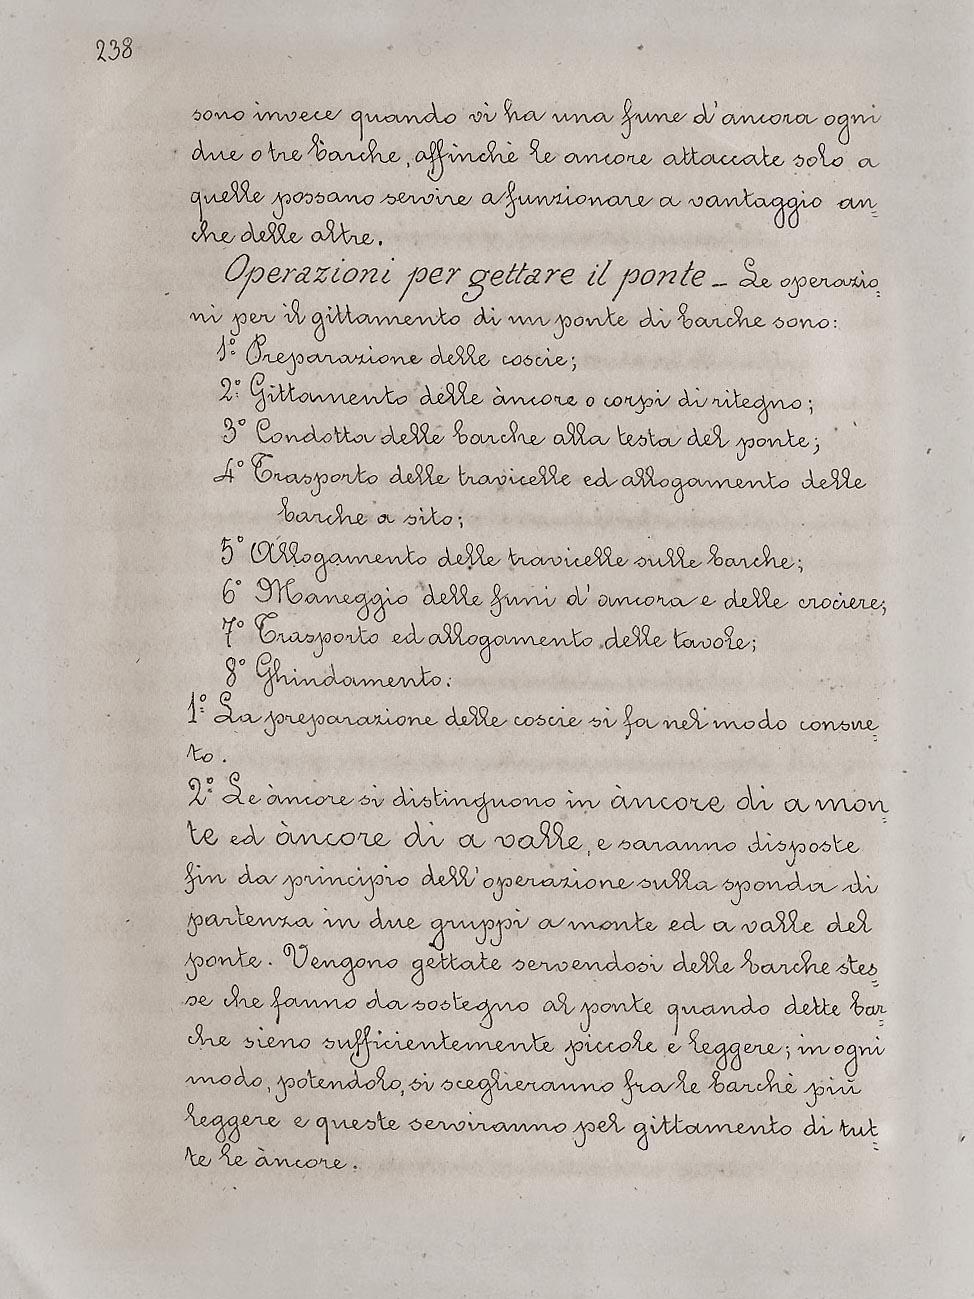 238
sono invece quando vi ha una fune d'ancora ogni
due o tre barche, affinchè le ancore attaccate solo a
quelle possano servire a funzionare a vantaggio an=
che delle altre.
Operazioni per gettare il ponte _ Le operazio=
ni per il gittamento di un ponte di barche sono:
1° Preparazione delle coscie;
2° Gittamento delle àncore o corpi di ritegno;
3° Condotta delle barche alla testa del ponte;
4° Trasporto delle travicelle ed allogamento delle
barche a sito;
5° Allogamento delle travicelle sulle barche;
6° Maneggio delle funi d'ancora e delle crociere;
7° Trasporto ed allogamento delle tavole;
8° Ghindamento.
1° La preparazione delle coscie si fa nel modo consue=
to.
2° Le àncore si distinguono in àncore di a mon=
te ed àncore di a valle, e saranno disposte
fin da principio dell'operazione sulla sponda di
partenza in due gruppi a monte ed a valle del
ponte. Vengono gettate servendosi delle barche stes=
se che fanno da sostegno al ponte quando dette bar=
che sieno sufficientemente piccole e leggere; in ogni
modo, potendolo, si sceglieranno fra le barche più
leggere e queste serviranno pel gittamento di tut=
te le àncore.